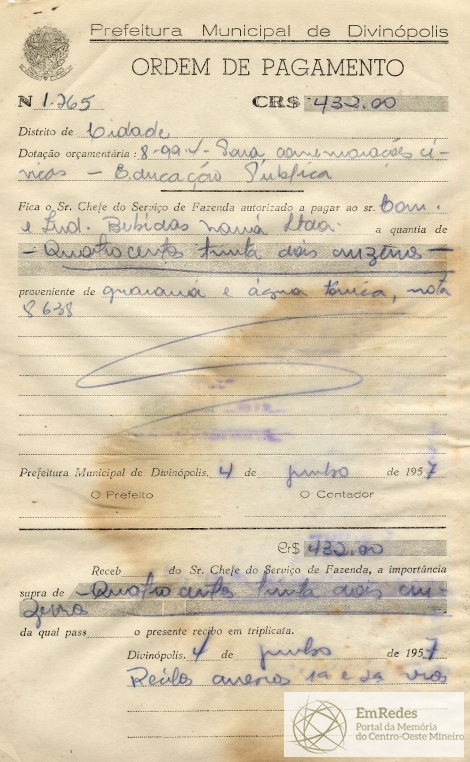 Prefeitura Municipal de Divinópolis
ORDEM DE PAGAMENTO
N 1.265 CR$ 432.00
Distrito de Cidade
Dotação orçamentária : 8-99-1- Para comemorações cí-
vicas - Educação Pública
Fica o Sr. Chefe do Serviço de Fazenda autorizado a pagar ao sr. Com.
e Ind. Bebidas Ltda. a quantia de
- Quatrocentos trinta dois cruzeiros -
proveniente de guaraná e água tônica, nota
8638
Prefeitura Municipal de Divinópolis, 4 de junho de 1957
O Prefeito O Contador
Cr$ 432.00
Receb do Sr. Chefe do Serviço de Fazenda, a importância
supra de - Quatrocentos trinta dois cru-
zeiros
da qual pass o presente recibo em triplicata.
Divinópolis, 4 de junho de 1957
Recibos anexos 1a e 2a vias
EmRedes
Portal da Memória
do Centro-Oeste Mineiro